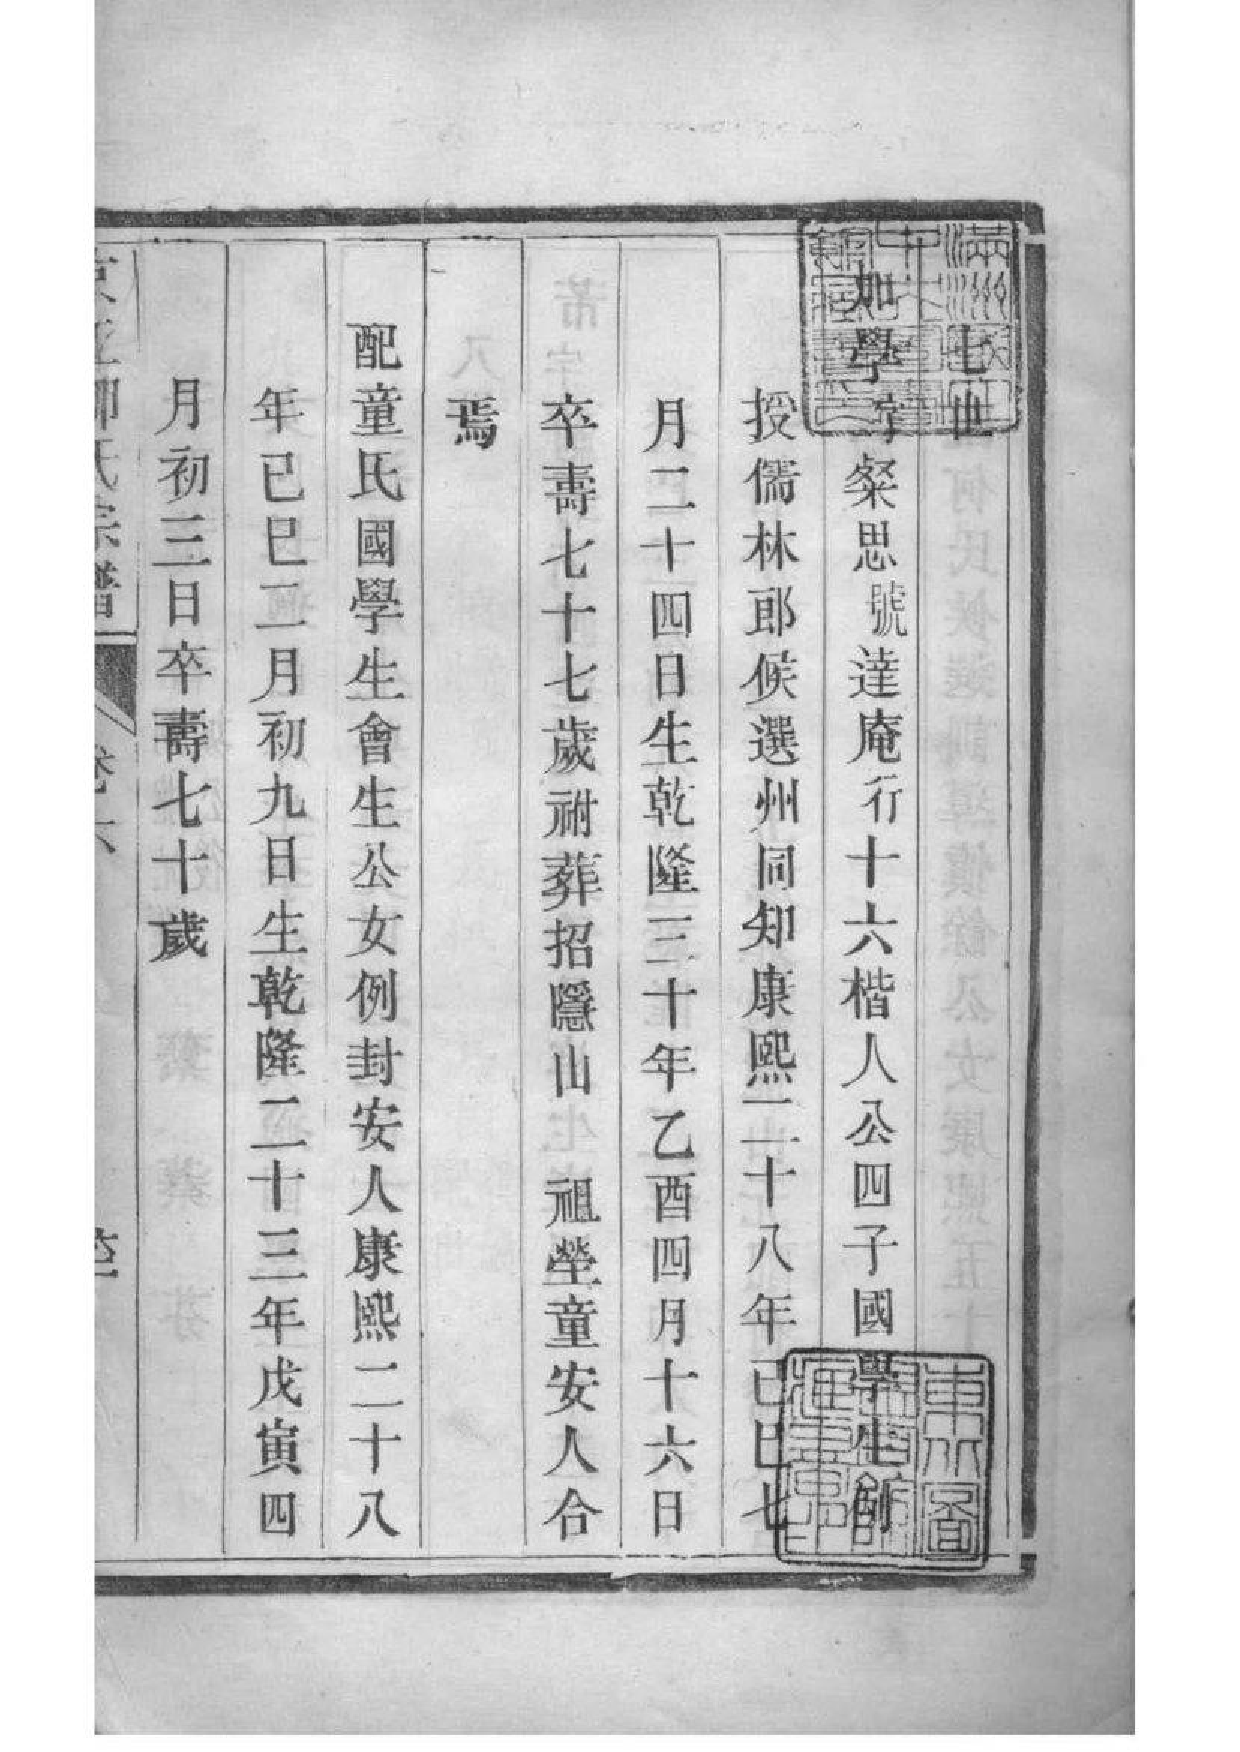 七世
加學字粲思號達庵行十六楷人公四子國學生例
授儒林郎候選州同知康熙二十八年己巳七
月二十四日生乾隆三十年乙酉四月十六日
卒壽七十七歲祔葬招隱山祖塋童安人合
焉
配童氏國學生會生公女例封安人康熙二十八
年己巳二月初九日生乾隆二十三年戊寅四
月初三日卒壽七十歲
氏宗譜 卷六